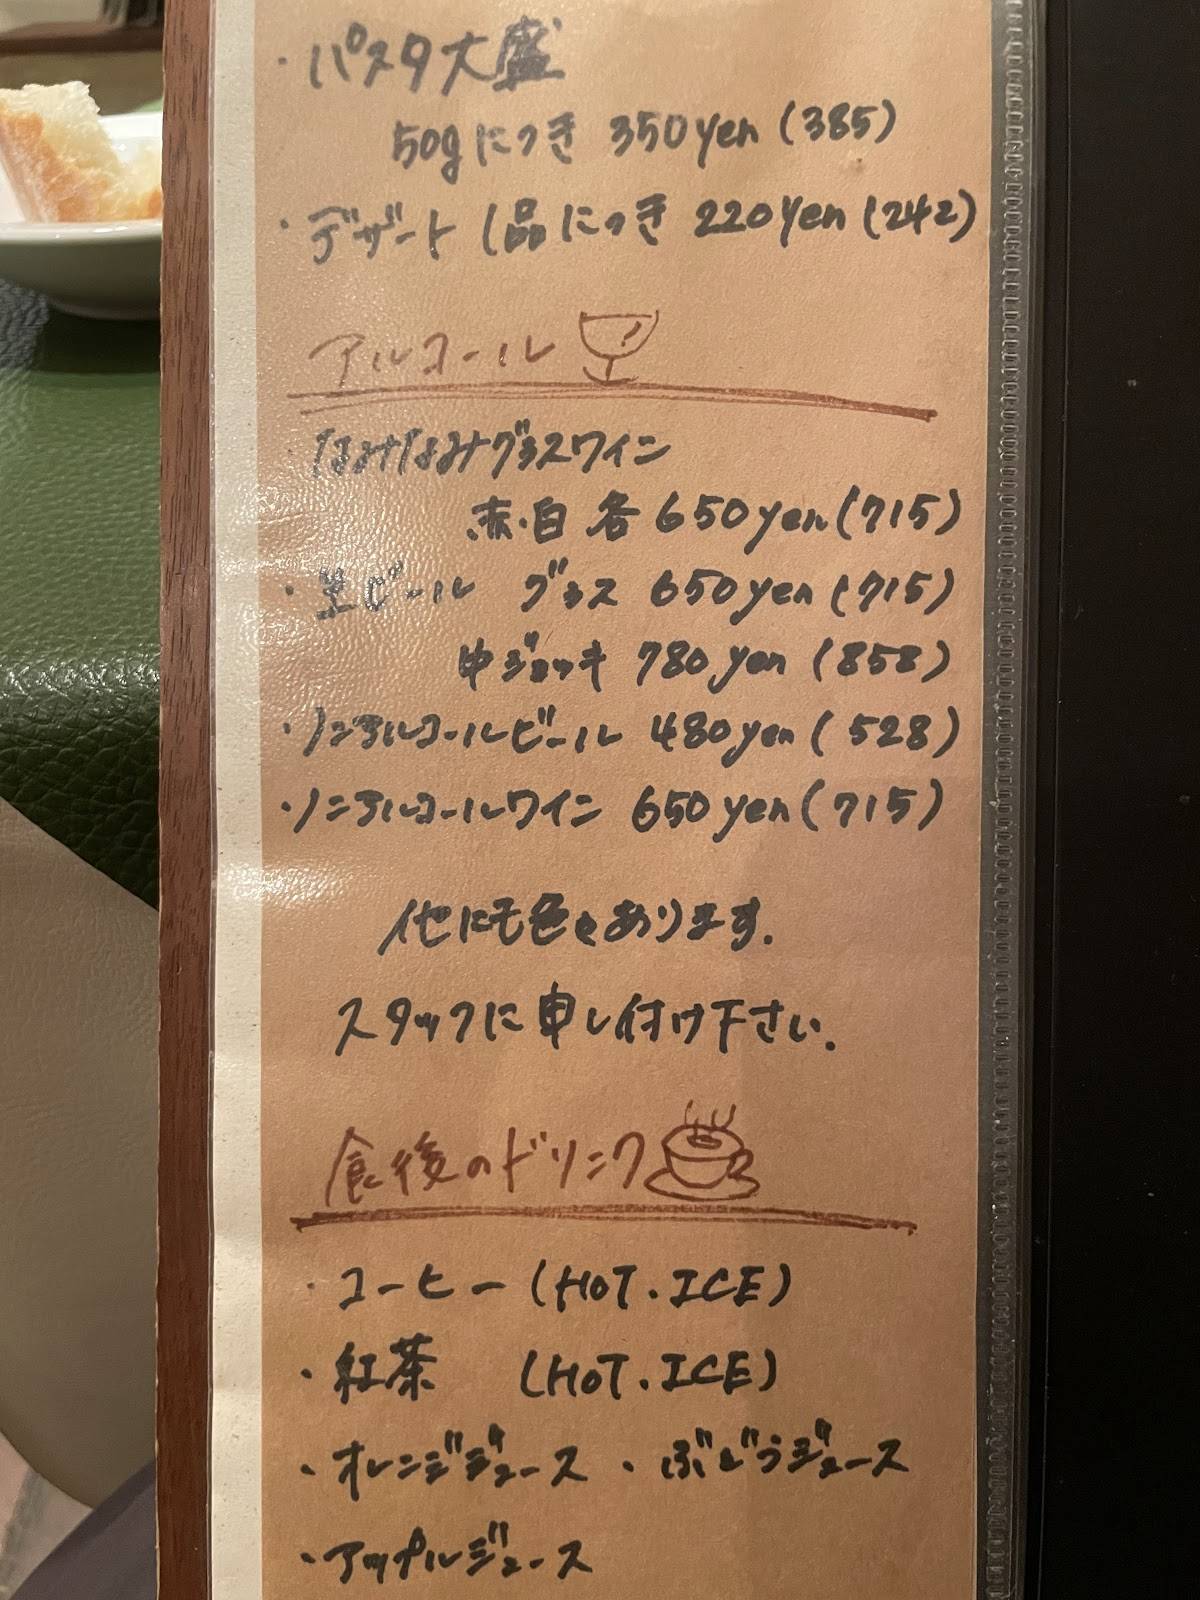 ・パスタ大盛
50gにつき 350yen (385)
・デザート 1品につき 220yen (242)
アルコール
なみなみグラスワイン
赤・白 各 650yen (715)
・生ビール グラス 650yen (715)
中ジョッキ 780yen (858)
・ノンアルコールビール 480yen (528)
・ノンアルコールワイン 650yen (715)
他にも色々あります.
スタッフに申し付け下さい.
食後のドリンク
・コーヒー (HOT.ICE)
・紅茶 (HOT.ICE)
・オレンジジュース ・ぶどうジュース
・アップルジュース